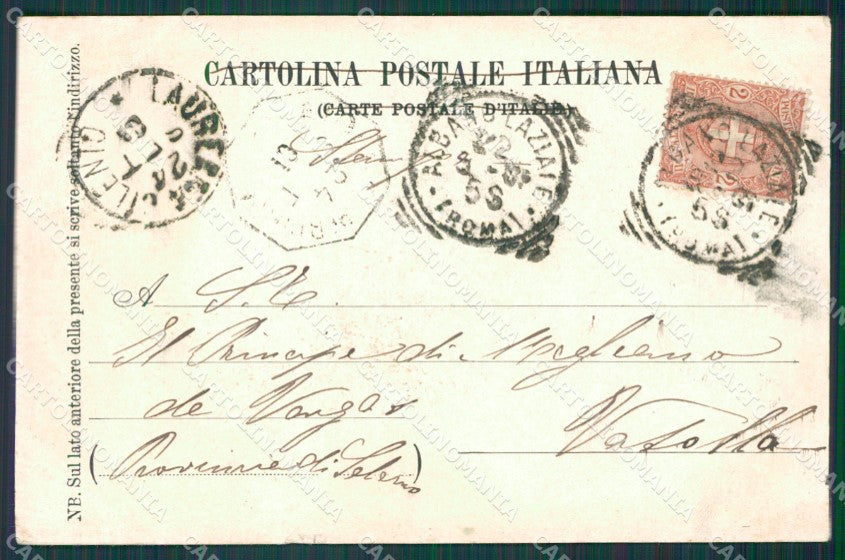 CARTOLINA POSTALE ITALIANA
(CARTE POSTALE D'ITALIE)
Stampe
A S. E.
Il Principe di Migliano
de Vargas
Vatolla
(Provincia di Salerno)
NB. Sul lato anteriore della presente si scrive soltanto l'indirizzo.
LAUREANA CILENTO
ALBANO LAZIALE
(ROMA)
ALBANO LAZIALE
(ROMA)
2
CARTOLINOMANIA